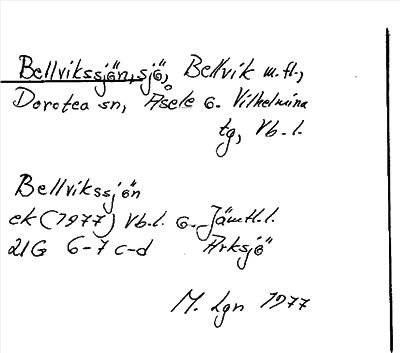 Bellvikssjön, sjö, Bellvik m.fl.,
Dorotea sn, Åsele o. Vilhelmina
tg, Vb.l.
Bellvikssjön
ek (1977) Vb.l. o. Jämtl.l.
21G 6-7 c-d Arksjö
M. Lgn 1977